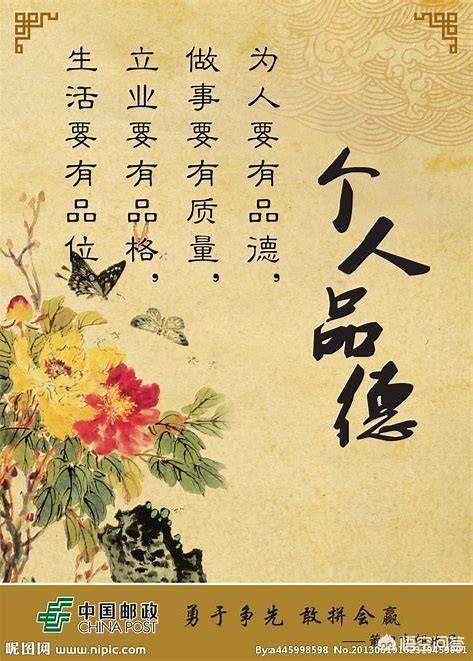 个人品德
为人要有品德,
做事要有质量,
立业要有品格,
生活要有品位。
中国邮政
CHINA POST
勇于争先 敢拼会赢
昵图网 www.nipic.com
By:a445998598